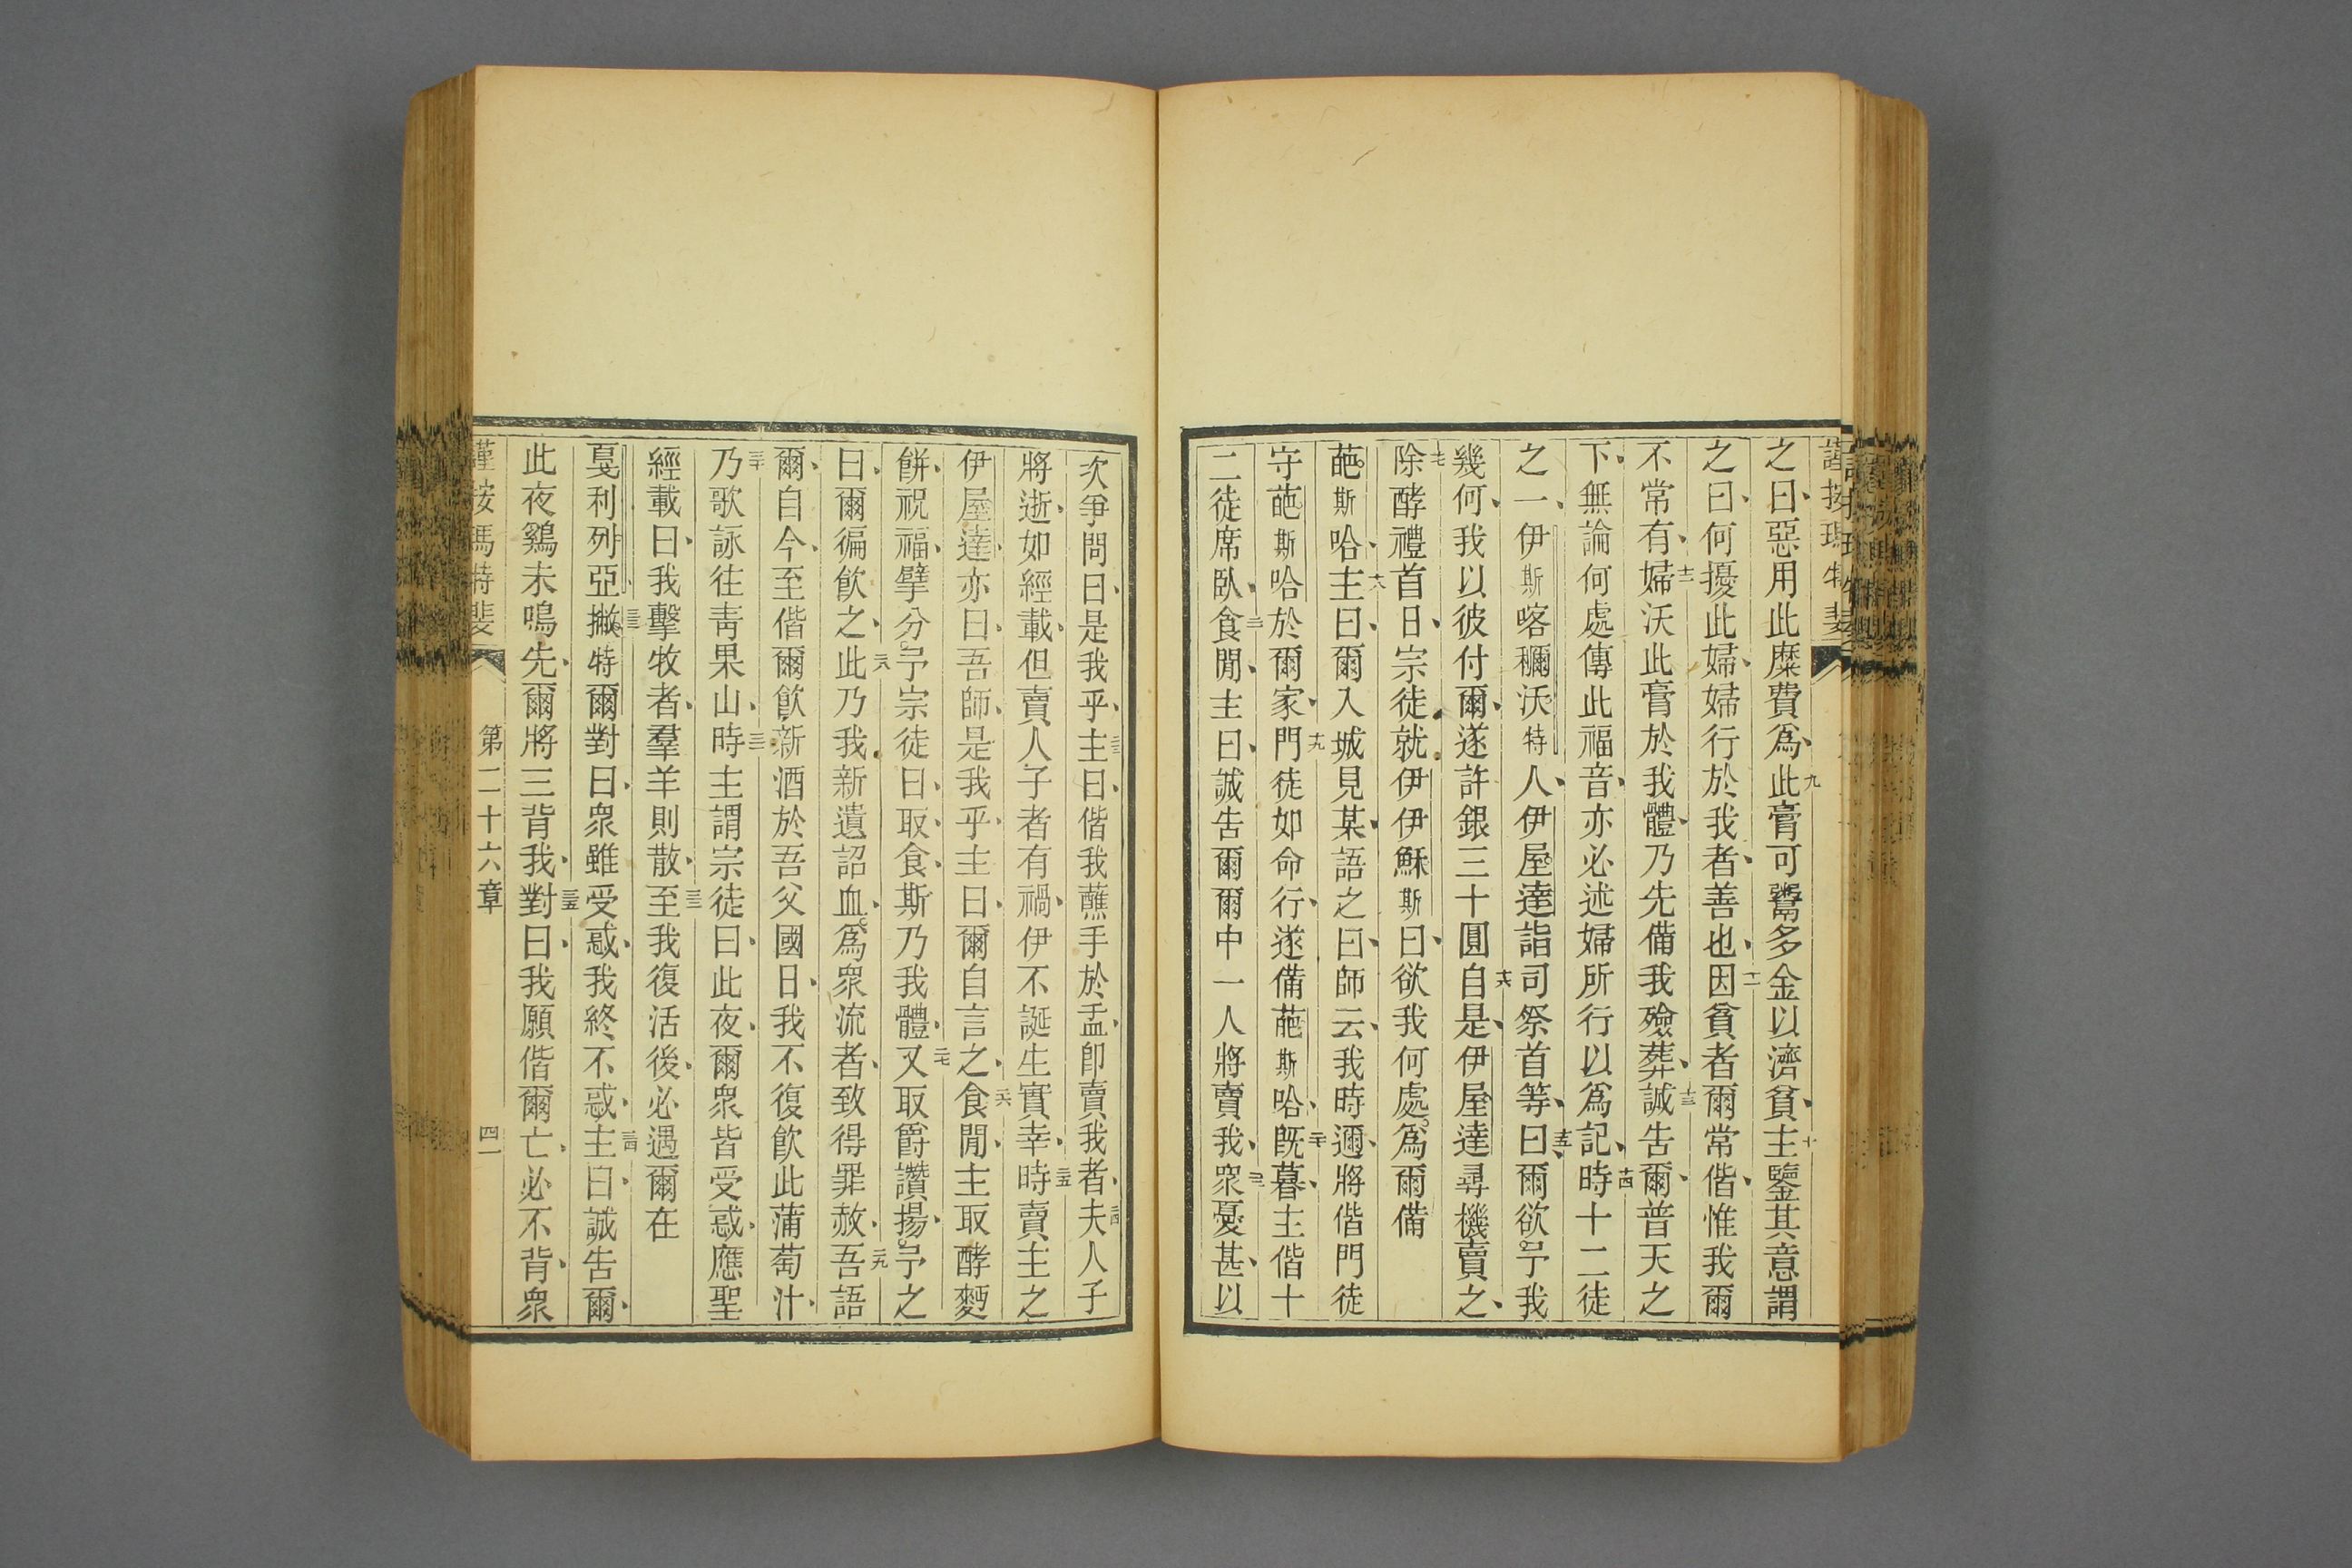 謹按瑪特斐
之曰惡用此糜費爲九此膏可鬻多金以濟貧十主鑒其意謂
之曰何擾此婦婦行於我者善也十一因貧者爾常偕惟我爾
不常有十二婦沃此膏於我體乃先備我殮葬十三誠告爾普天之
下無論何處傳此福音亦必述婦所行以爲記十四時十二徒
之一伊斯喀穪沃特人伊屋達詣司祭首等十五曰爾欲予我
幾何我以彼付爾遂許銀三十圓十六自是伊屋達尋機賣之
十七除酵禮首日宗徒就伊伊穌斯曰欲我何處爲爾備
葩斯哈十八主曰爾入城見某語之曰師云我時邇將偕門徒
守葩斯哈於爾家十九門徒如命行遂備葩斯哈二十旣暮主偕十
二徒席臥二一食閒主曰誠告爾爾中一人將賣我二二眾憂甚以
次爭問曰是我乎二三主曰偕我蘸手於盂卽賣我者二四夫人子
將逝如經載但賣人子者有禍伊不誕生實幸二五時賣主之
伊屋達亦曰吾師是我乎主曰爾自言之二六食閒主取酵麪
餅祝福擘分予宗徒曰取食斯乃我體二七又取爵讚揚予之
曰爾徧飮之二八此乃我新遺詔血爲衆流者致得罪赦二九吾語
爾自今至偕爾飮新酒於吾父國日我不復飮此蒲萄汁
三十乃歌詠往靑果山三一時主謂宗徒曰此夜爾衆皆受惑應聖
經載曰我擊牧者羣羊則散三二至我復活後必遇爾在
戛利列亞三三撇特爾對曰衆雖受惑我終不惑三四主曰誠告爾
此夜鷄未鳴先爾將三背我三五對曰我願偕爾亡必不背衆
謹按瑪特斐 第二十六章 四一